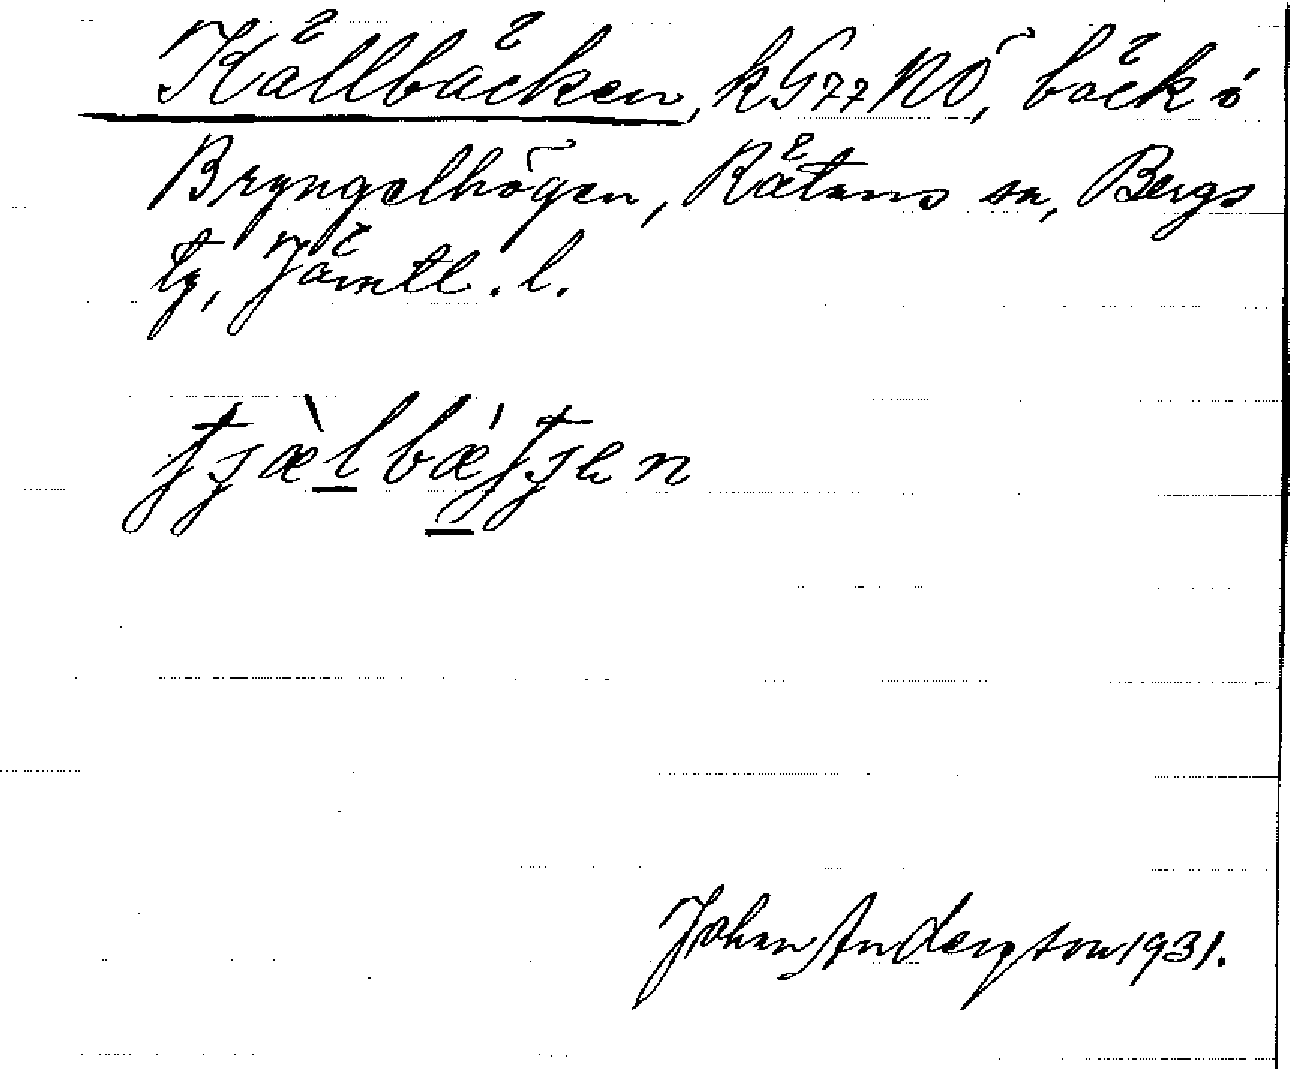 Källbäcken, kG77NÖ, bäck i
Bryngelhögen, Rätans sn, Bergs
tg, Jämtl. l.
tjæ̀lbǽtjen
Johan Anderson 1931.